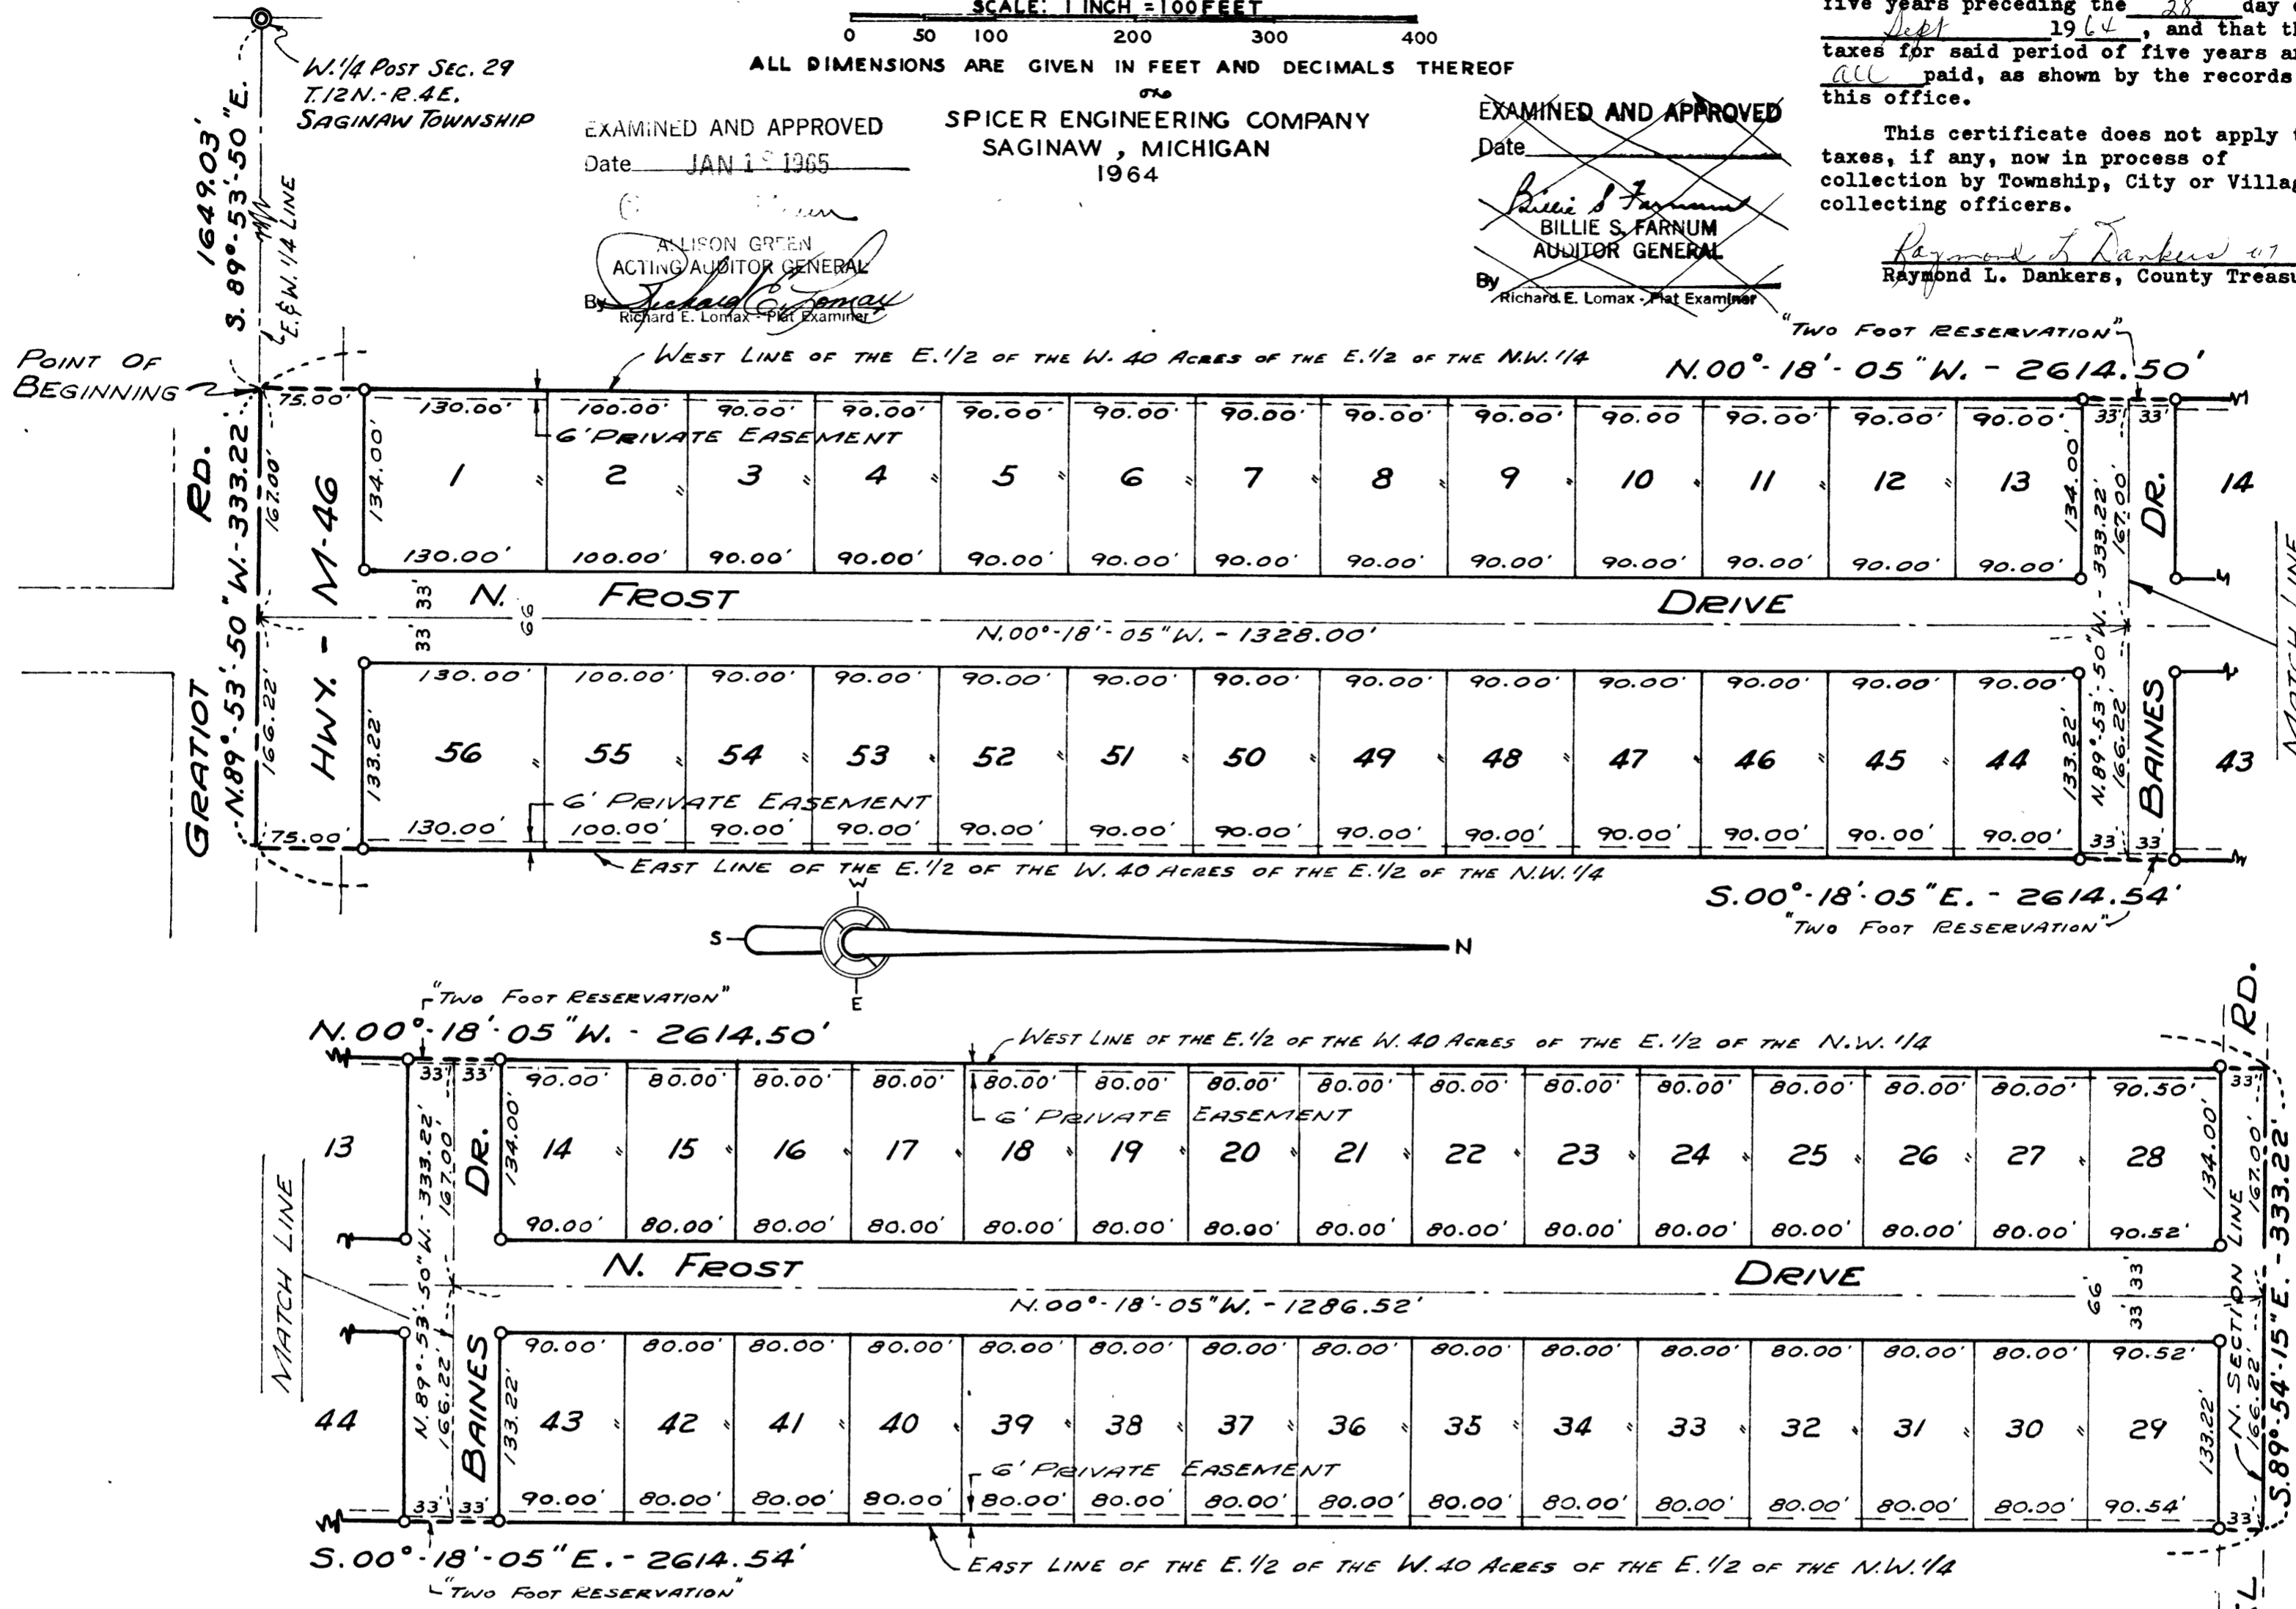 SCALE: 1 INCH = 100 FEET
0 50 100 200 300 400
ALL DIMENSIONS ARE GIVEN IN FEET AND DECIMALS THEREOF
SPICER ENGINEERING COMPANY
SAGINAW, MICHIGAN
1964
W. 1/4 POST SEC. 29
T. 12 N. - R. 4 E.
SAGINAW TOWNSHIP
1649.03'
S. 89°-53'-50" E.
E. & W. 1/4 LINE
EXAMINED AND APPROVED
Date JAN 1 1965
ALLISON GREEN
ACTING AUDITOR GENERAL
By Richard E. Lomax
Richard E. Lomax - Plat Examiner
EXAMINED AND APPROVED
Date
Billie S Farnum
BILLIE S. FARNUM
AUDITOR GENERAL
By
Richard E. Lomax - Plat Examiner
five years preceding the 28 day
Sept 1964, and that
taxes for said period of five years
all paid, as shown by the records
this office.
This certificate does not apply
taxes, if any, now in process of
collection by Township, City or
collecting officers.
Raymond L Dankers
Raymond L. Dankers, County
"TWO FOOT RESERVATION"
POINT OF
BEGINNING
WEST LINE OF THE E. 1/2 OF THE W. 40 ACRES OF THE E. 1/2 OF THE N.W. 1/4
N. 00°-18'-05" W. - 2614.50'
75.00' 130.00' 100.00' 90.00' 90.00' 90.00' 90.00' 90.00' 90.00' 90.00' 90.00 90.00' 90.00' 90.00' 33' 33'
6' PRIVATE EASEMENT
134.00' 1 " 2 " 3 " 4 " 5 " 6 " 7 " 8 " 9 " 10 " 11 " 12 " 13 134.00' 14
130.00' 100.00' 90.00' 90.00' 90.00' 90.00' 90.00' 90.00' 90.00' 90.00' 90.00' 90.00' 90.00'
GRATIOT RD.
N. 89°-53'-50" W. - 333.22'
167.00'
166.22'
HWY. - M-46
33' 33'
66
N. FROST DRIVE
N. 00°-18'-05" W. - 1328.00'
N. 89°-53'-50" W. - 333.22'
167.00'
166.22'
BAINES DR.
MATCH LINE
130.00' 100.00' 90.00' 90.00' 90.00' 90.00' 90.00' 90.00' 90.00' 90.00' 90.00' 90.00' 90.00'
133.22' 56 " 55 " 54 " 53 " 52 " 51 " 50 " 49 " 48 " 47 " 46 " 45 " 44 133.22' 43
6' PRIVATE EASEMENT
75.00' 130.00' 100.00' 90.00' 90.00' 90.00' 90.00' 90.00' 90.00' 90.00' 90.00' 90.00' 90.00' 90.00' 33' 33'
EAST LINE OF THE E. 1/2 OF THE W. 40 ACRES OF THE E. 1/2 OF THE N.W. 1/4
S. 00°-18'-05" E. - 2614.54'
"TWO FOOT RESERVATION"
W
S N
E
"TWO FOOT RESERVATION"
N. 00°-18'-05" W. - 2614.50'
WEST LINE OF THE E. 1/2 OF THE W. 40 ACRES OF THE E. 1/2 OF THE N.W. 1/4
RD.
33' 33' 90.00' 80.00' 80.00' 80.00' 80.00' 80.00' 80.00' 80.00' 80.00' 80.00' 80.00' 80.00' 80.00' 80.00' 90.50' 33'
6' PRIVATE EASEMENT
13 134.00' 14 " 15 " 16 " 17 " 18 " 19 " 20 " 21 " 22 " 23 " 24 " 25 " 26 " 27 " 28 134.00'
90.00' 80.00' 80.00' 80.00' 80.00' 80.00' 80.00' 80.00' 80.00' 80.00' 80.00' 80.00' 80.00' 80.00' 90.52'
MATCH LINE
N. 89°-53'-50" W. - 333.22'
167.00'
166.22'
BAINES DR.
N. FROST DRIVE
N. 00°-18'-05" W. - 1286.52'
66'
33' 33'
N. SECTION LINE
167.00'
166.22'
S. 89°-54'-15" E. - 333.22'
90.00' 80.00' 80.00' 80.00' 80.00' 80.00' 80.00' 80.00' 80.00' 80.00' 80.00' 80.00' 80.00' 80.00' 90.52'
44 133.22' 43 " 42 " 41 " 40 " 39 " 38 " 37 " 36 " 35 " 34 " 33 " 32 " 31 " 30 " 29 133.22'
6' PRIVATE EASEMENT
33' 33' 90.00' 80.00' 80.00' 80.00' 80.00' 80.00' 80.00' 80.00' 80.00' 80.00' 80.00' 80.00' 80.00' 80.00' 90.54' 33'
S. 00°-18'-05" E. - 2614.54'
EAST LINE OF THE E. 1/2 OF THE W. 40 ACRES OF THE E. 1/2 OF THE N.W. 1/4
"TWO FOOT RESERVATION"